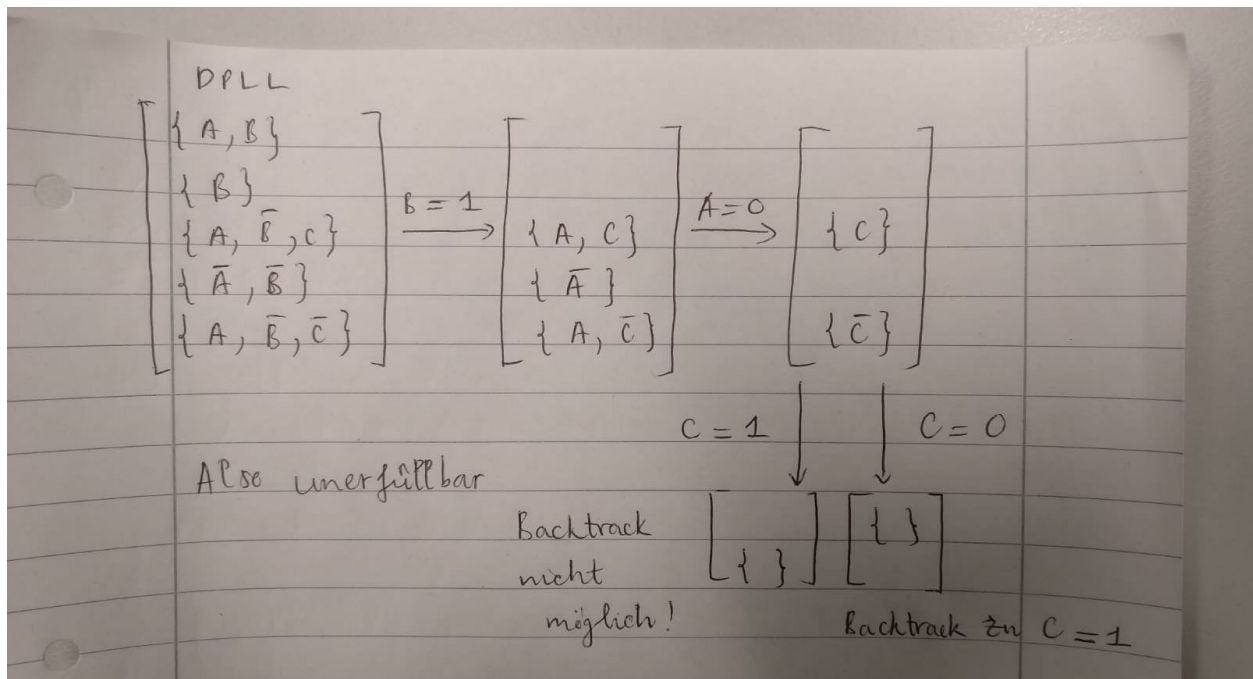 DPLL
{ A, B}
{ B}
{ A, B̄, C}
{ Ā, B̄ }
{ A, B̄, C̄ }
B = 1
{ A, C}
{ Ā }
{ A, C̄}
A=0
{ C}
{ C̄}
C = 1
C = 0
Also unerfüllbar
{ }
{ }
Backtrack
nicht
möglich!
Backtrack zu C = 1